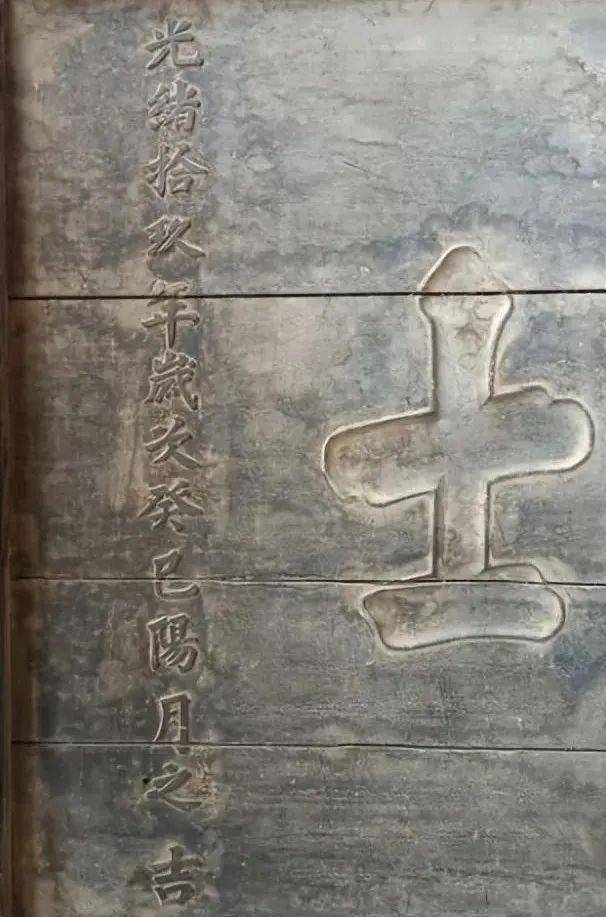 士
光緒拾玖年歲次癸巳陽月之吉